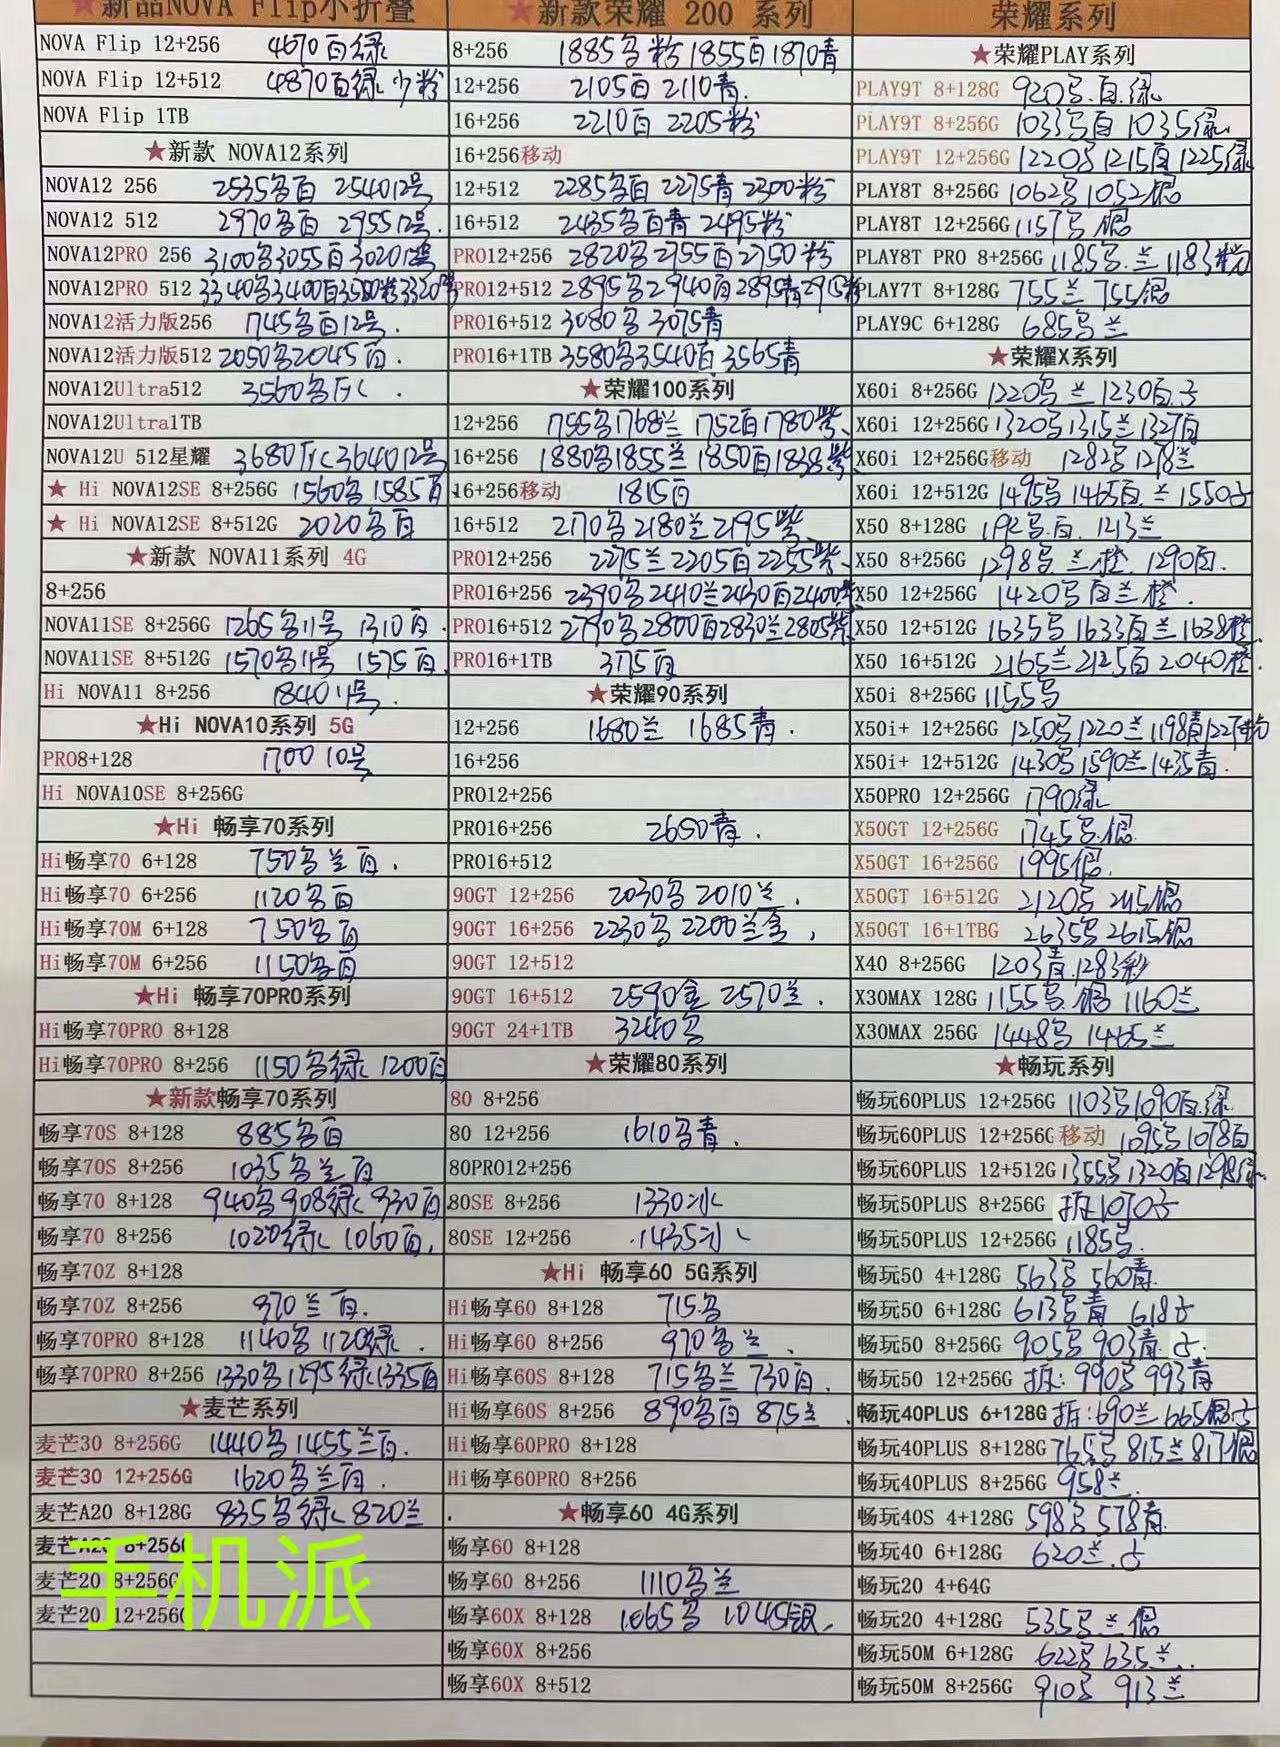 ★新品NOVA Flip小折叠
NOVA Flip 12+256 4670白绿
NOVA Flip 12+512 4870白绿 少粉
NOVA Flip 1TB
★新款 NOVA12系列
NOVA12 256 2535多白 2540 12号
NOVA12 512 2970多白 2955 12号
NOVA12PRO 256 3100多3055白3020 12号
NOVA12PRO 512 3340多3400白
NOVA12活力版256 1745多白12号.
NOVA12活力版512 2050多2045白.
NOVA12Ultra512 3560多
NOVA12Ultra1TB
NOVA12U 512星耀 3680 3640 12号
★ Hi NOVA12SE 8+256G 1560多 1585白
★ Hi NOVA12SE 8+512G 2020多白
★新款 NOVA11系列 4G
8+256
NOVA11SE 8+256G 1265多11号 1310白.
NOVA11SE 8+512G 1570多11号 1575白.
Hi NOVA11 8+256 1840 11号.
★Hi NOVA10系列 5G
PRO8+128 1700 10号
Hi NOVA10SE 8+256G
★Hi 畅享70系列
Hi畅享70 6+128 750多兰白.
Hi畅享70 6+256 1120多白
Hi畅享70M 6+128 750多白
Hi畅享70M 6+256 1150多白
★Hi 畅享70PRO系列
Hi畅享70PRO 8+128
Hi畅享70PRO 8+256 1150多绿 1200白
★新款畅享70系列
畅享70S 8+128 885多白
畅享70S 8+256 1035多兰白
畅享70 8+128 940多908绿 930白
畅享70 8+256 1020绿 1060白.
畅享70Z 8+128
畅享70Z 8+256 970兰白.
畅享70PRO 8+128 1140多1120绿.
畅享70PRO 8+256 1330多1295绿1335白
★麦芒系列
麦芒30 8+256G 1440多1455兰白.
麦芒30 12+256G 1620多兰白.
麦芒A20 8+128G 835多绿 820兰
麦芒A20 8+256G
麦芒20 8+256G
麦芒20 12+256G
手机派
★新款荣耀 200 系列
8+256 1885多粉1855白1870青
12+256 2105白 2110青.
16+256 2210白 2205粉
16+256移动
12+512 2285多白2275青2300粉
16+512 2435多白青2495粉
PRO12+256 2820多2755白2750粉
PRO12+512 2895多2940白2895青2915粉
PRO16+512 3080多3075青
PRO16+1TB 3580多3540白3565青
★荣耀100系列
12+256 1755多1768兰 1752白1780紫
16+256 1880多1855兰1850白1838紫
16+256移动 1815白
16+512 2170多2180兰2195紫
PRO12+256 2275兰2205白2255紫
PRO16+256 2390多2410兰2430白2400紫
PRO16+512 2790多2800白2830兰2805紫
PRO16+1TB 3175白
★荣耀90系列
12+256 1680兰 1685青.
16+256
PRO12+256
PRO16+256 2650青.
PRO16+512
90GT 12+256 2030多2010兰.
90GT 16+256 2230多2200兰金,
90GT 12+512
90GT 16+512 2590金 2570兰.
90GT 24+1TB 3240多
★荣耀80系列
80 8+256
80 12+256 1610多青.
80PRO12+256
80SE 8+256 1330冰
80SE 12+256 1435冰
★Hi 畅享60 5G系列
Hi畅享60 8+128 715多
Hi畅享60 8+256 970多兰.
Hi畅享60S 8+128 715多兰730白.
Hi畅享60S 8+256 890多白875兰.
Hi畅享60PRO 8+128
Hi畅享60PRO 8+256
★畅享60 4G系列
畅享60 8+128
畅享60 8+256 1110多兰
畅享60X 8+128 1065多 1045银.
畅享60X 8+256
畅享60X 8+512
荣耀系列
★荣耀PLAY系列
PLAY9T 8+128G 920多.白.绿
PLAY9T 8+256G 1033多白 1035绿.
PLAY9T 12+256G 1220多1215白1225绿
PLAY8T 8+256G 1062多1052银
PLAY8T 12+256G 1157多 银
PLAY8T PRO 8+256G 1185多.兰1183粉
PLAY7T 8+128G 755兰 755银
PLAY9C 6+128G 685多兰
★荣耀X系列
X60i 8+256G 1220多 兰1230白.
X60i 12+256G 1320多1315兰1327白
X60i 12+256G移动 1282多1278兰
X60i 12+512G 1495多1465白.兰1550
X50 8+128G 多.白. 1213兰
X50 8+256G 1298多兰橙.1290白.
X50 12+256G 1420多白兰橙.
X50 12+512G 1635多1633白兰1638橙
X50 16+512G 2165兰2125白2040橙.
X50i 8+256G 1155多
X50i+ 12+256G 1250多1220兰1198青1227粉
X50i+ 12+512G 1430多1590兰1435青.
X50PRO 12+256G 1790绿
X50GT 12+256G 1745多.银.
X50GT 16+256G 1995银.
X50GT 16+512G 2120多 2115银
X50GT 16+1TBG 2635多2615银
X40 8+256G 1203青.1283彩
X30MAX 128G 1155多.银 1160兰
X30MAX 256G 1448多 1465兰
★畅玩系列
畅玩60PLUS 12+256G 1103多1090白.绿
畅玩60PLUS 12+256G 移动 1095多1078白
畅玩60PLUS 12+512G 1355多1320白1298绿
畅玩50PLUS 8+256G 拆1070
畅玩50PLUS 12+256G 1185多.
畅玩50 4+128G 563多 560青.
畅玩50 6+128G 613多青 618
畅玩50 8+256G 905多903青.
畅玩50 12+256G 拆:990多993青
畅玩40PLUS 6+128G 拆:690兰 665银
畅玩40PLUS 8+128G 765多815兰817银
畅玩40PLUS 8+256G 958兰.
畅玩40S 4+128G 598多578青.
畅玩40 6+128G 620兰.
畅玩20 4+64G
畅玩20 4+128G 535多兰银
畅玩50M 6+128G 622多635兰.
畅玩50M 8+256G 910多 913兰